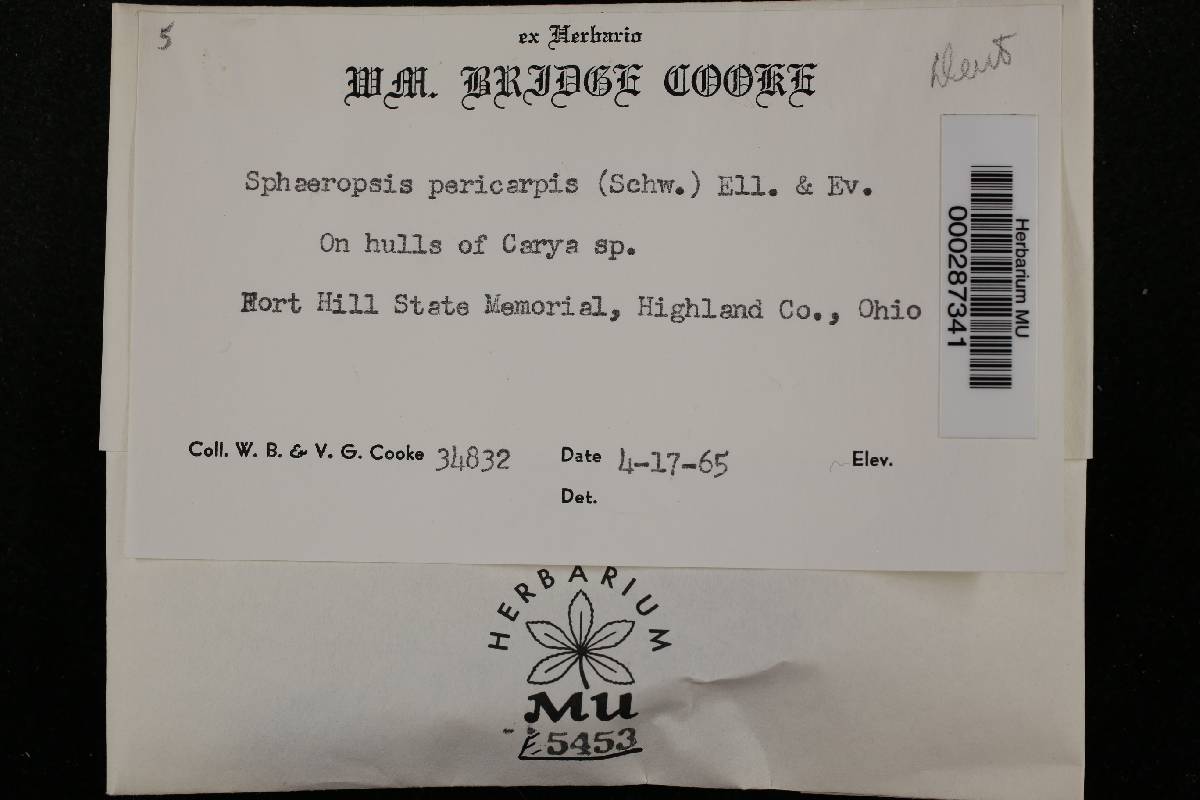 5
ex Herbario
WM. BRIDGE COOKE
Sphaeropsis pericarpis (Schw.) Ell. & Ev.
On hulls of Carya sp.
Fort Hill State Memorial, Highland Co., Ohio
Herbarium MU
000287341
Coll. W. B. & V. G. Cooke 34832 Date 4-17-65 Elev.
Det.
HERBARIUM
MU
F 5453